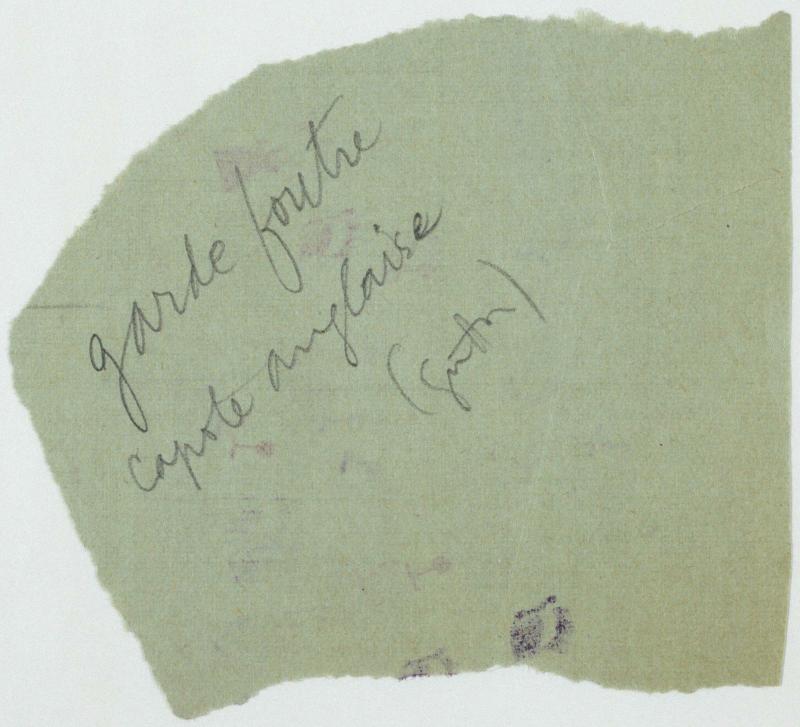 garde foutre
capote anglaise